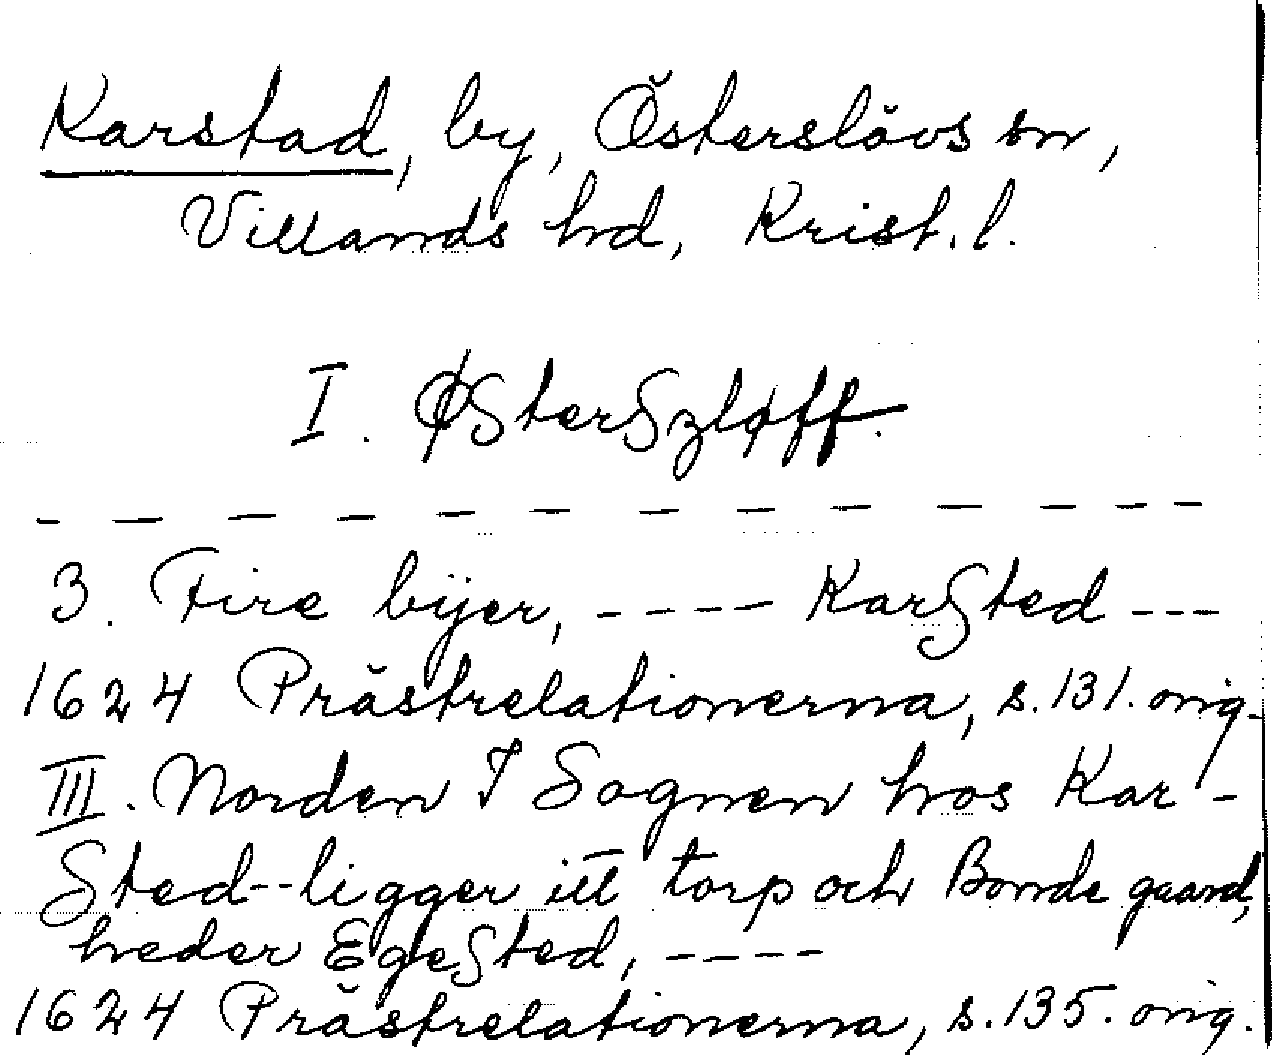 Karstad, by, Österslövs sn,
Villands hd, Krist. l.
I. ØSterSzløff.
— — — — — — — — — — — —
3. Fire bÿer, ---- KarSted ---
1624 Prästrelationerna, s. 131. orig.
III. Norden I Sognen hos Kar-
Sted--ligger itt torp och Bonde gaard,
heder EgeSted, ----
1624 Prästrelationerna, s. 135. orig.